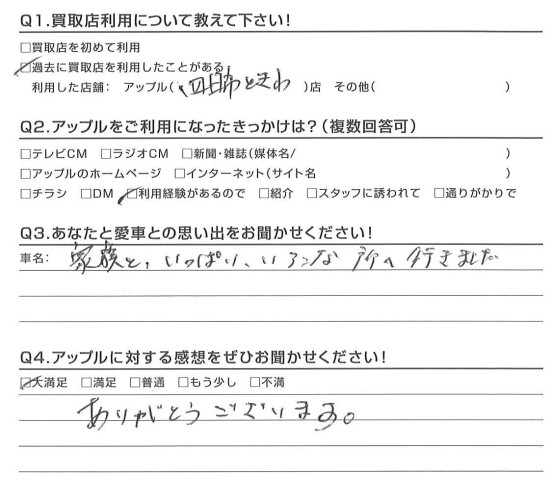 Q1.買取店利用について教えて下さい！
□買取店を初めて利用
☑過去に買取店を利用したことがある
利用した店舗： アップル（四日市ときわ）店 その他（ ）
Q2.アップルをご利用になったきっかけは？（複数回答可）
□テレビCM □ラジオCM □新聞・雑誌（媒体名/ ）
□アップルのホームページ □インターネット（サイト名 ）
□チラシ □DM ☑利用経験があるので □紹介 □スタッフに誘われて □通りがかりで
Q3.あなたと愛車との思い出をお聞かせください！
車名： 家族と、いっぱい、いろんな所へ行きました
Q4.アップルに対する感想をぜひお聞かせください！
☑大満足 □満足 □普通 □もう少し □不満
ありがとうございます。